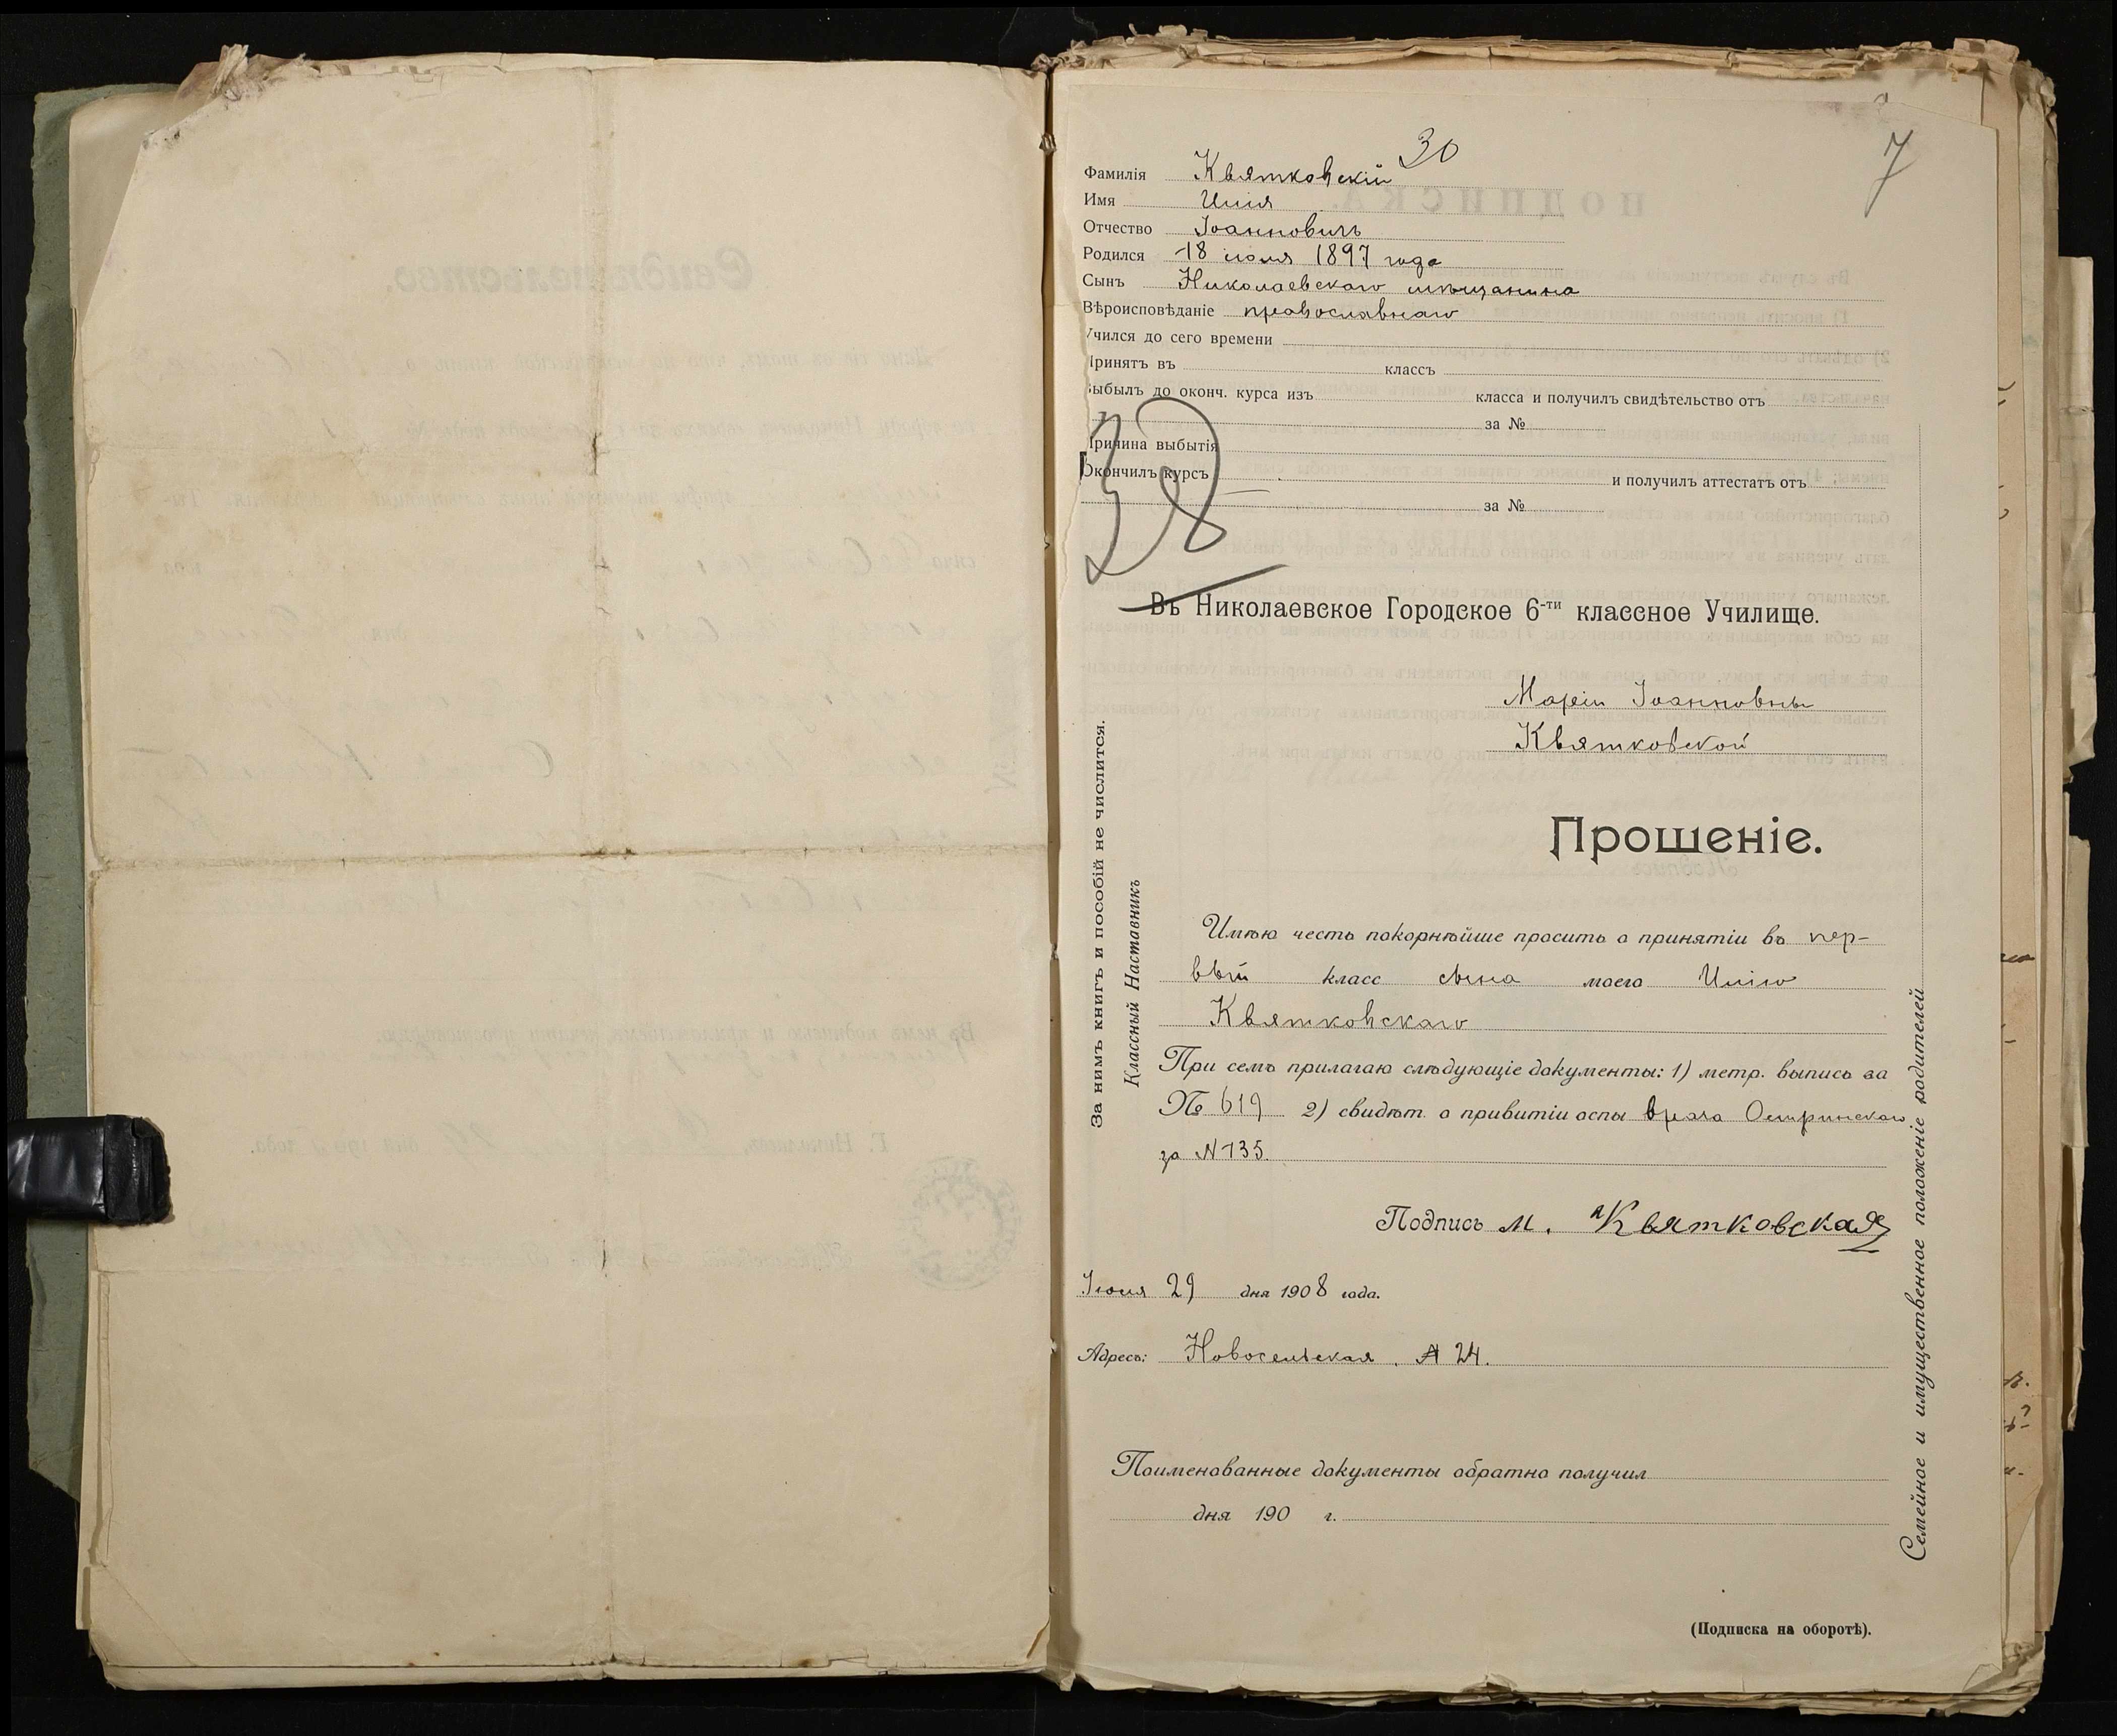 30
7
Фамилія Квятковскій
Имя Илія
Отчество Іоанновичъ
Родился 18 іюля 1897 года
Сынъ Николаевскаго мѣщанина
Вѣроисповѣданіе православнаго
Учился до сего времени
Принятъ въ классъ
Выбылъ до оконч. курса изъ класса и получилъ свидѣтельство отъ
за №
Причина выбытія
Окончилъ курсъ и получилъ аттестатъ отъ
за №
Въ Николаевское Городское 6-ти классное Училище.
Маріи Іоанновны
Квятковской
Прошеніе.
Имѣю честь покорнѣйше просить о принятіи въ пер-
вый класс сына моего Илію
Квятковскаго
При семъ прилагаю слѣдующіе документы: 1) метр. выпись за
№ 619 2) свидѣт. о привитіи оспы врача Остринскаго
за № 135.
Подпись М. Квятковская
Іюня 29 дня 1908 года.
Адресъ: Новосельская, № 24.
Поименованные документы обратно получил
дня 190 г.
(Подписка на оборотѣ).
За нимъ книгъ и пособій не числится.
Классный Наставникъ
Семейное и имущественное положеніе родителей